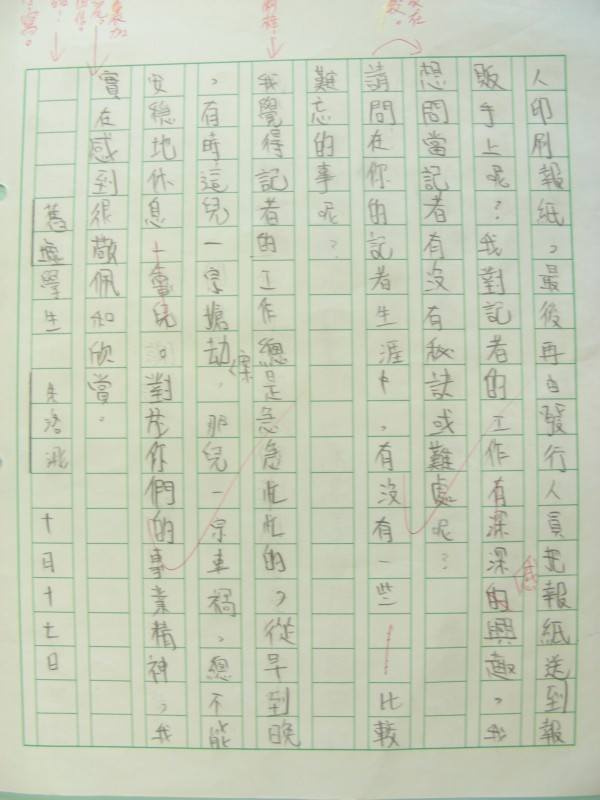 人印刷報紙，最後再由發行人員把報紙送到報
販手上呢？我對記者的工作有深深的興趣，我
想問當記者有沒有秘訣或難處呢？
請問在你的記者生涯中，有沒有一些一比較
難忘的事呢？
我覺得記者的工作總是急急忙忙的，從早到晚
，有時這兒一宗搶劫案，那兒一宗車禍，總不能
安穩地休息十會兒。對於你們的事業精神，我
實在感到很敬佩和欣賞。
學生
十月十七日
感